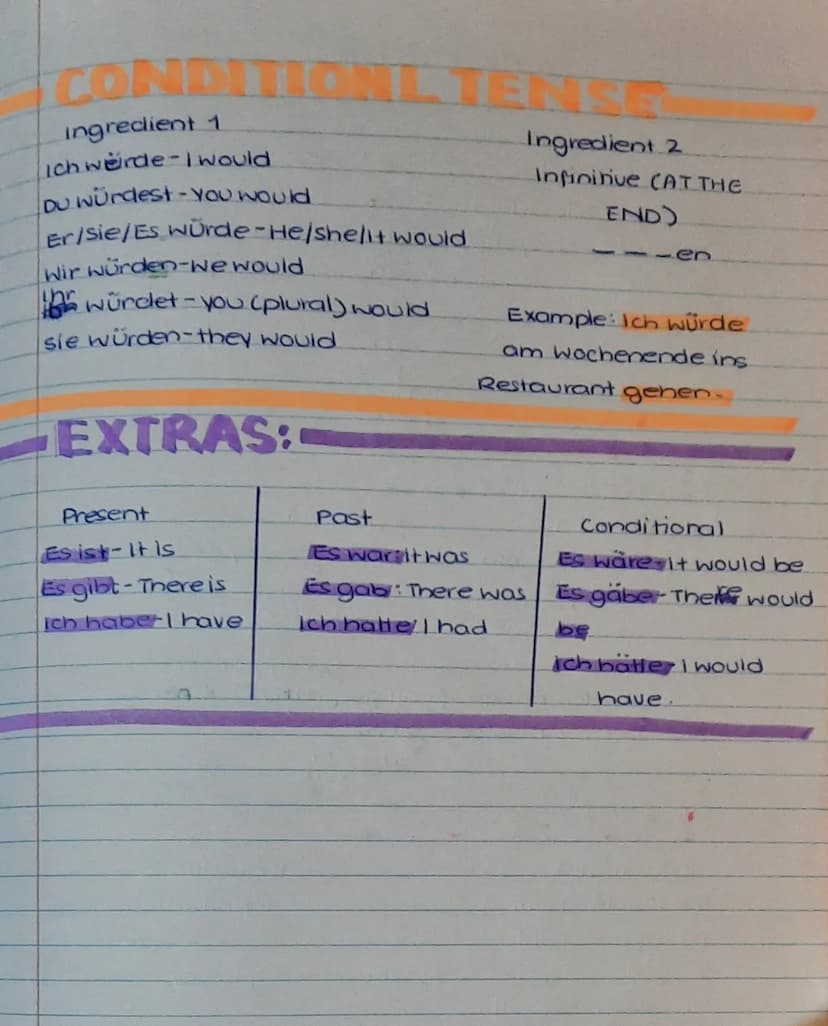 CONDITIONL TENSE
Ingredient 1
Ich würde - I would
Du würdest - you would
Er/sie/Es würde - He/she/it would
Wir würden - we would
ihr würdet - you (plural) would
sie würden - they would
Ingredient 2
Infinitive (AT THE
END)
– – – en
Example: Ich würde
am wochenende ins
Restaurant gehen.
EXTRAS:
Present
Es ist - It Is
Es gibt - There is
Ich habe - I have
Past
Es war: It was
Es gab: There was
Ich hatte / I had
Conditional
Es wäre - It would be
Es gäbe - There would
be
Ich hätte / I would
have.